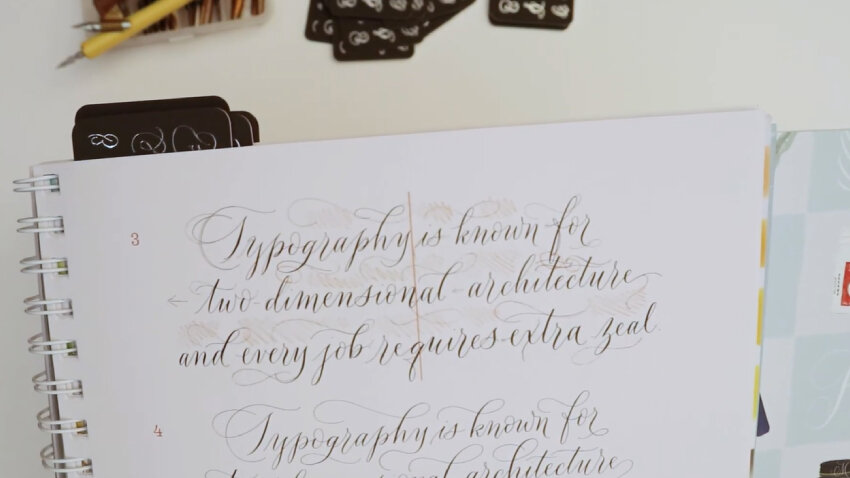 3
Typography is known for
two-dimensional architecture
and every job requires extra zeal.
4
Typography is known for
two-dimensional architecture